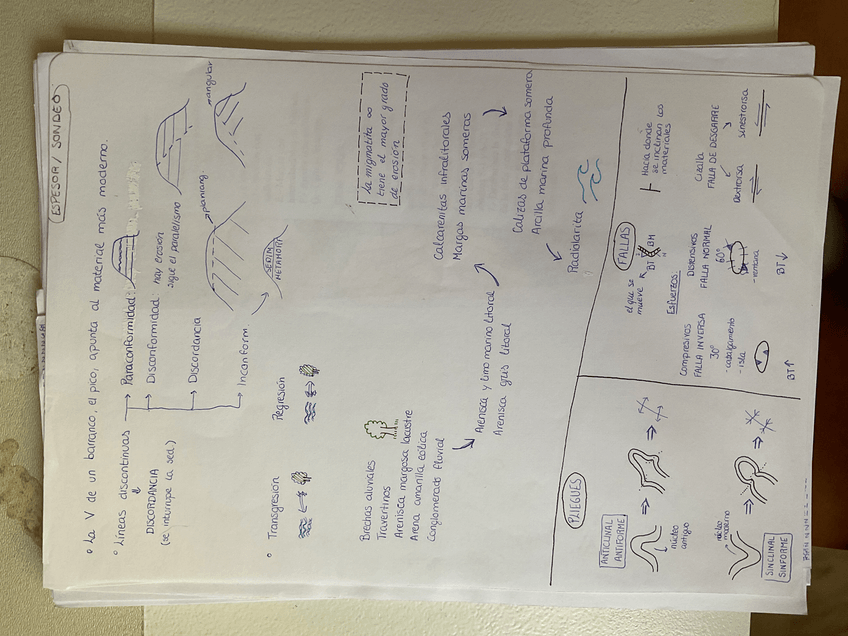 ESPESOR / SONDEO
• La V de un barranco, el pico, apunta al material más moderno.
• Líneas discontinuas
DISCORDANCIA
(se interrumpe la sed)
Paraconformidad
Disconformidad
hay erosión
sigue el paralelismo
Discordancia
angular
Inconform
SEDIM
METAMORF
• Transgresión
Regresión
la migmatita ∞
tiene el mayor grado
de erosión
Brechas aluviales
Travertinos
Arenisca margosa lacustre
Arena amarilla eólica
Conglomerado fluvial
Arenisca y limo marino litoral
Arenisca gris litoral
Calcarenitas infralitorales
Margas marinas someras
Calizas de plataforma somera
Arcilla marina profunda
Radiolarita
PLIEGUES
ANTICLINAL
ANTIFORME
núcleo
antiguo
núcleo
moderno
SINCLINAL
SINFORME
FALLAS
el que se
mueve
BT
BM
Hacia donde
se inclinan los
materiales
Esfuerzos:
Compresivos
FALLA INVERSA
30º
- cabalgamiento
- isla
BT↑
Distensivos
FALLA NORMAL
60º
- ventana
BT↓
Cizalla
FALLA DE DESGARRE
Dextrorsa
Sinestrorsa